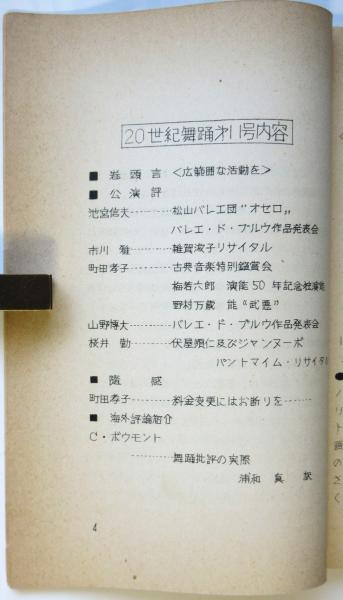 20世紀舞踊才11号内容
■ 巻頭言 <広範囲な活動を>
■ 公演評
池宮信夫---------松山バレエ団"オセロ„
バレエ・ド・プルウ作品発表会
市川 雅---------雑賀淑子リサイタル
町田孝子---------古典音楽特別鑑賞会
梅若六郎 演能50年記念祝演能
野村万蔵 能"武悪"
山野博大---------バレエ・ド・プルウ作品発表会
桜井 勤---------伏屋順仁及びジャンヌーボ
パントマイム・リサイタル
■ 随 感
町田孝子---------料金変更にはお断りを----
■ 海外評論紹介
C・ボウモント
---------舞踊批評の実際
浦和 真 訳
4